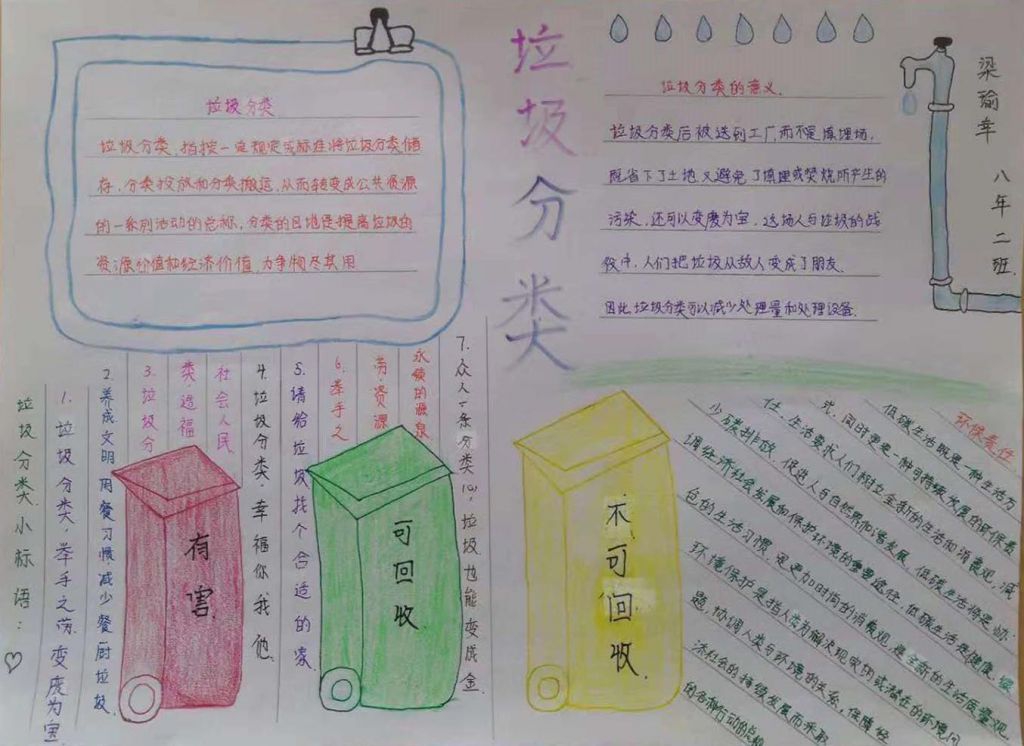 垃圾分类
梁瑜幸
八年二班
垃圾分类
垃圾分类,指按一定规定或标准将垃圾分类储
存,分类投放和分类搬运,从而转变成公共资源
的一系列活动的总称,分类的目地是提高垃圾的
资源价值和经济价值,力争物尽其用
垃圾分类的意义.
垃圾分类后被送到工厂而不是填埋场,
既省下了土地又避免了填埋或焚烧所产生的
污染,还可以变废为宝,这场人与垃圾的战
役中,人们把垃圾从敌人变成了朋友.
因此垃圾分类可以减少处理量和处理设备.
垃圾分类小标语:
1.垃圾分类,举手之劳,变废为宝
2.养成文明用餐习惯,减少餐厨垃圾
3.垃圾分
类,造福
社会人民
4.垃圾分类幸福你我他.
5.请给垃圾找个合适的家
6.举手之
劳,资源
永续的源泉
7.众人一条分类心,垃圾也能变成金.
有害
可回收
不可回收
环保责任
低碳生活既是一种生活方
式,同时更是一种可持续发展的环保责
任,生活要求人们树立全新的生活和消费观,减
少碳排放,促进人与自然界和谐发展,低碳生活将是协
调经济社会发展和保护环境的重要途径,低碳生活是健康,绿
色的生活习惯,是更加时尚的消费观,是全新的生活质量观,
环境保护是指人类为解决现实的或潜在的环境问
题,协调人类与环境的关系,保障经
济社会的持续发展而采取
的各种行动的总称